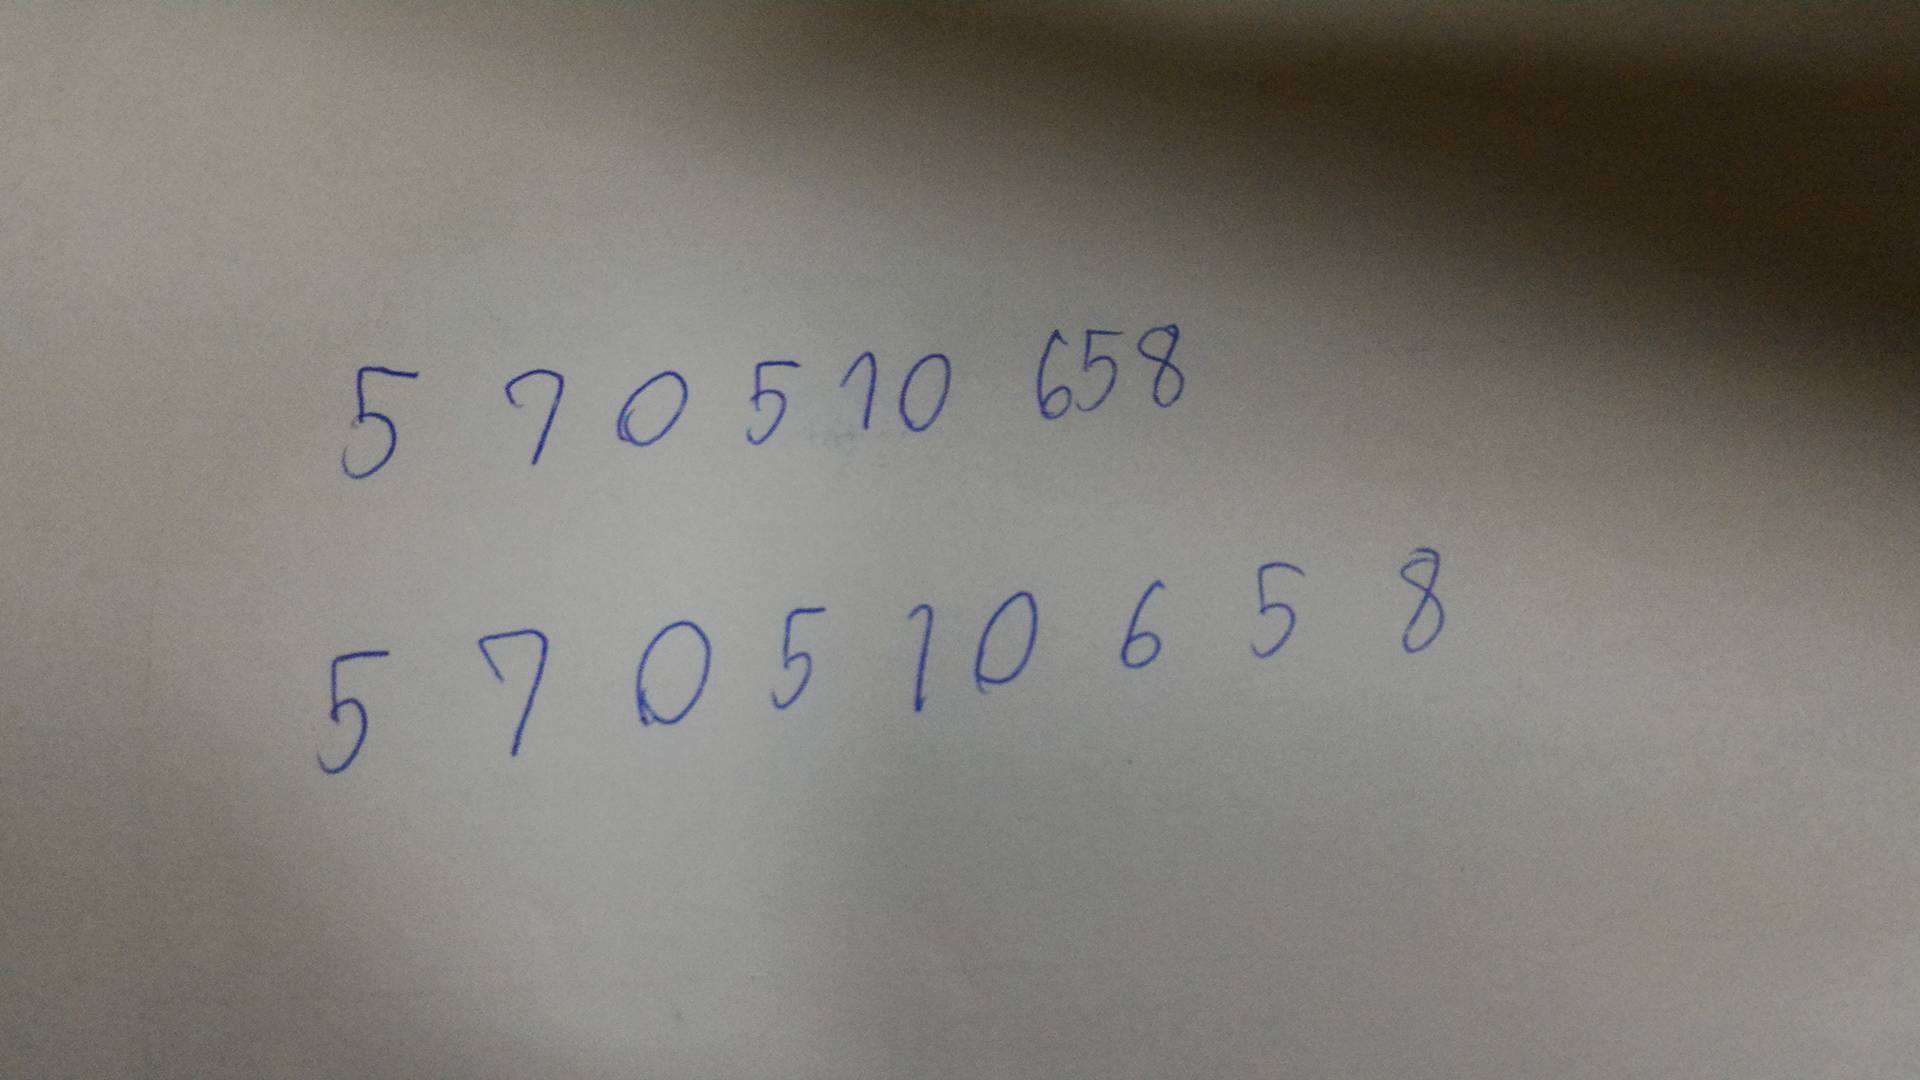 5 7 0 5 10 658
5 7 0 5 1 0 6 5 8